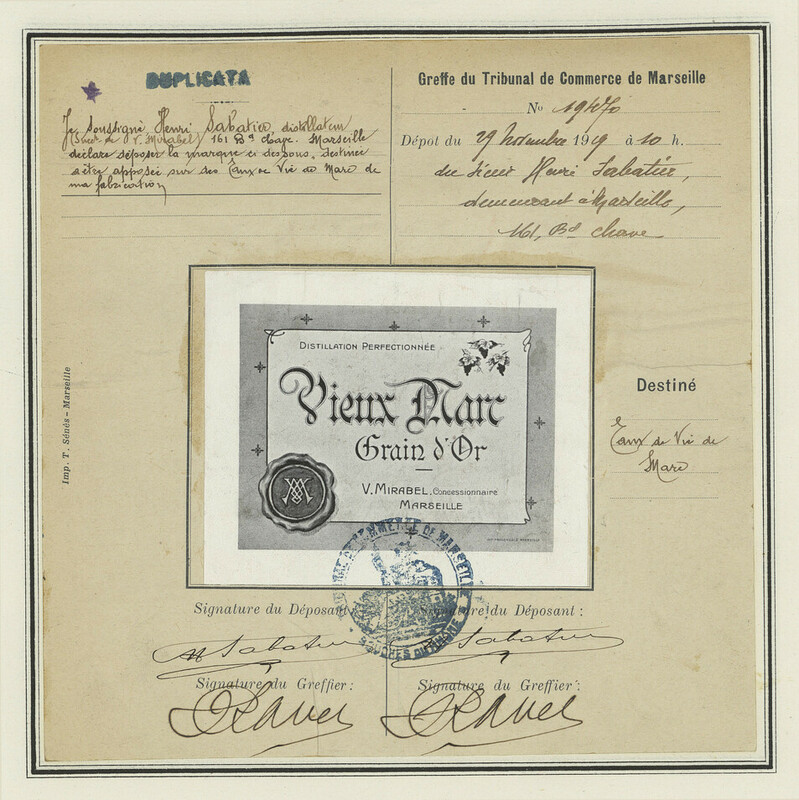 DUPLICATA
Je soussigné Henri Sabatier, distillateur
(Succr de V. Mirabel) 161 Bd Chave. Marseille
déclare déposer la marque ci dessous, destinée
a être apposée sur des Eaux de Vie de Marc de
ma fabrication
Greffe du Tribunal de Commerce de Marseille
No 19470
Dépot du 29 Novembre 1919 à 10 h.
du sieur Henri Sabatier,
demeurant à Marseille,
161, Bd Chave
Imp. T. Sénès - Marseille
DISTILLATION PERFECTIONNÉE
Vieux Marc
Grain d'Or
V. MIRABEL, Concessionnaire
MARSEILLE
Destiné
Eaux de Vie de
Marc
TRIBUNAL DE COMMERCE DE MARSEILLE
BOUCHES DU RHONE
Signature du Déposant:
Signature du Déposant:
H Sabatier
H Sabatier
Signature du Greffier:
Signature du Greffier:
Ravel
Ravel